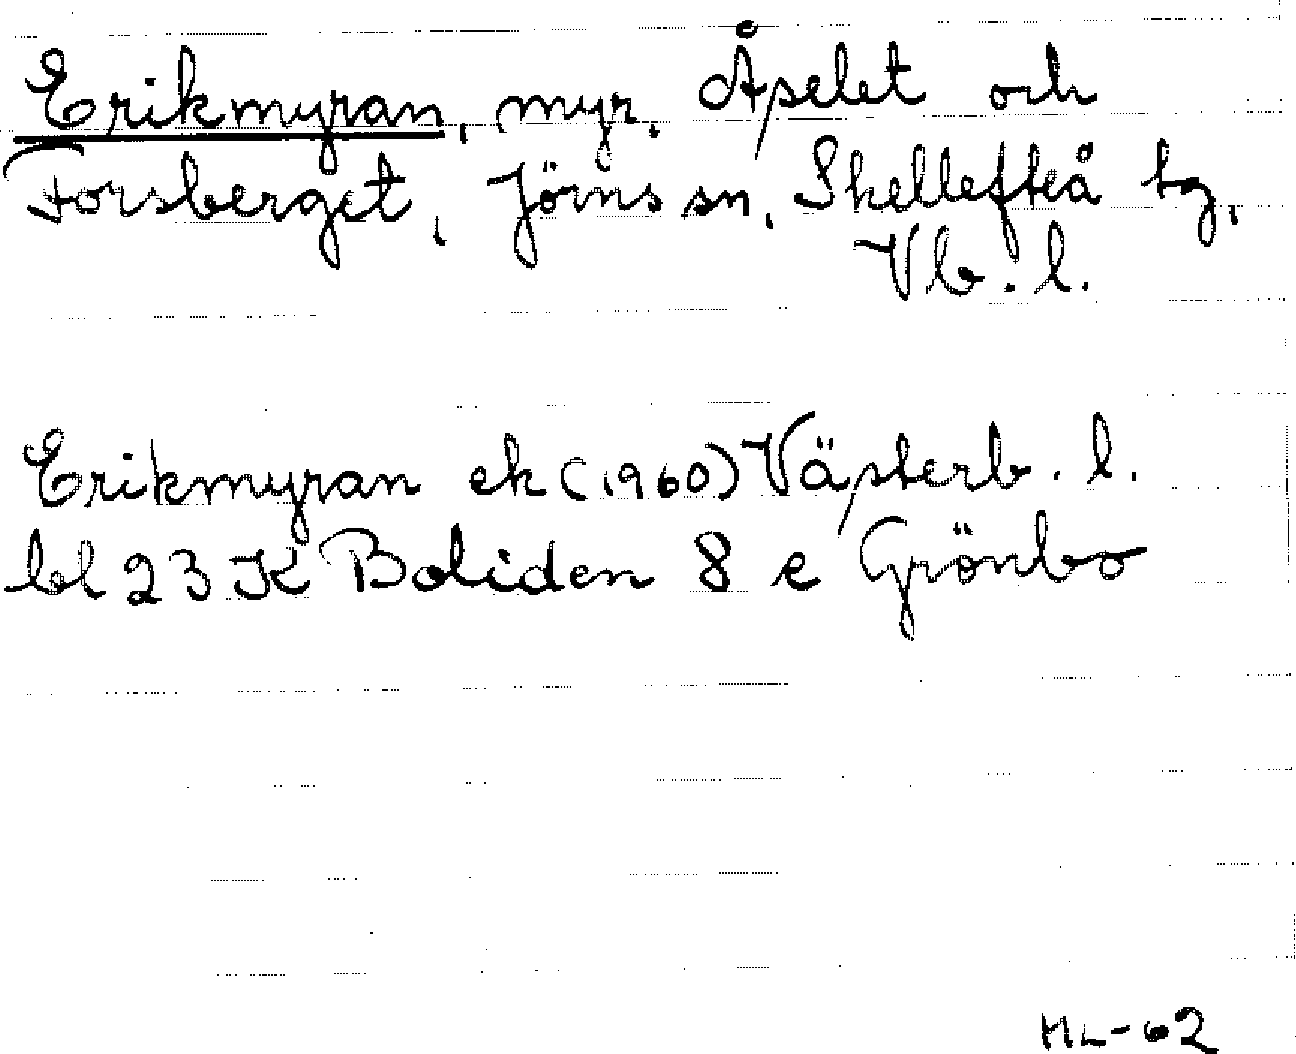 Erikmyran, myr. Åselet och
Forsberget, Jörns sn, Skellefteå tg,
Vb. l.
Erikmyran ek (1960) Västerb. l.
bl 23 K Boliden 8 e Grönbo
ML-62